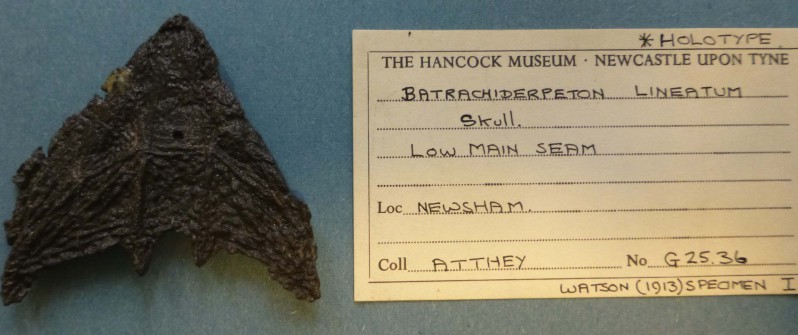 * HOLOTYPE
THE HANCOCK MUSEUM · NEWCASTLE UPON TYNE
BATRACHIDERPETON LINEATUM
Skull.
LOW MAIN SEAM
Loc NEWSHAM.
Coll ATTHEY No G 25.36
WATSON (1913) SPECIMEN I